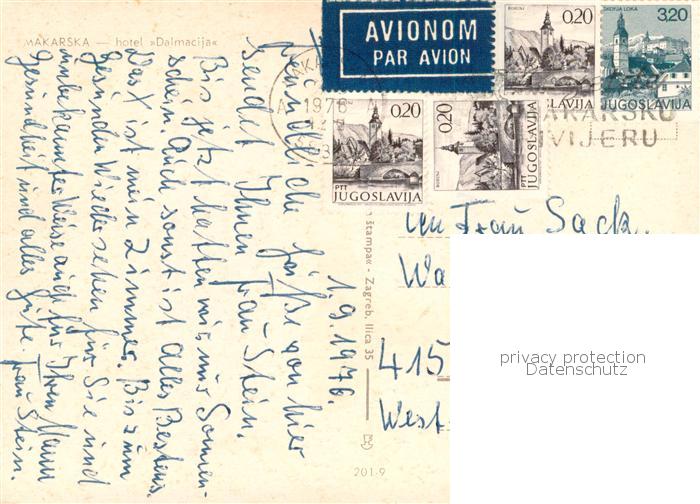 MAKARSKA — hotel »Dalmacija«
AVIONOM
PAR AVION
0,20
BOHINJ
PTT
JUGOSLAVIJA
3,20
ŠKOFJA LOKA
JUGOSLAVIJA
0,20
PTT
JUGOSLAVIJA
0,20
BOHINJ
PTT
JUGOSLAVIJA
1976
MAKARSKU
VIJERU
1.9.1976.
Freundliche Grüße von hier
sendet Ihnen Frau Stein.
Bis jetzt hatten wir nur Sonnen-
schein. Auch sonst ist alles Bestens.
Das X ist mein Zimmer. Bis zum
gesunden Wiedersehen für Sie und
unbekannter Weise auch für Ihren Mann
Gesundheit und alles Gute. Frau Stein.
štampa« - Zagreb, Ilica 35
201-9
An Frau Sack.
Wa
415
West
privacy protection
Datenschutz